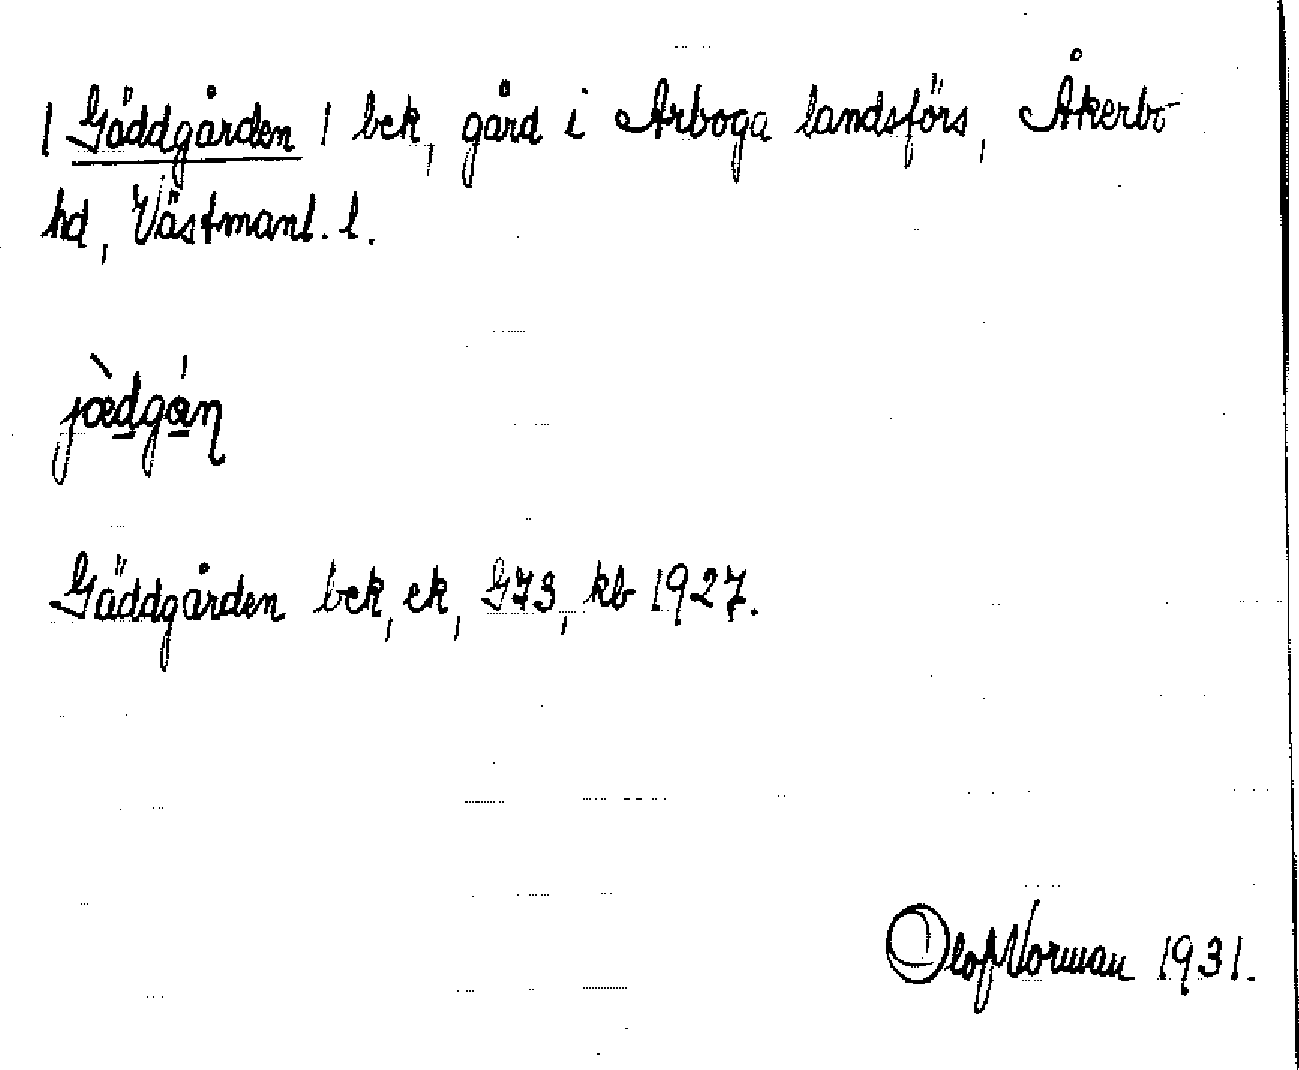 | Gäddgården | bek, gård i Arboga landsförs, Åkerbo
hd, Västmanl. l.
jæ̀dgán
Gäddgården bek, ek, G73, kb 1927.
Olof Norman 1931.